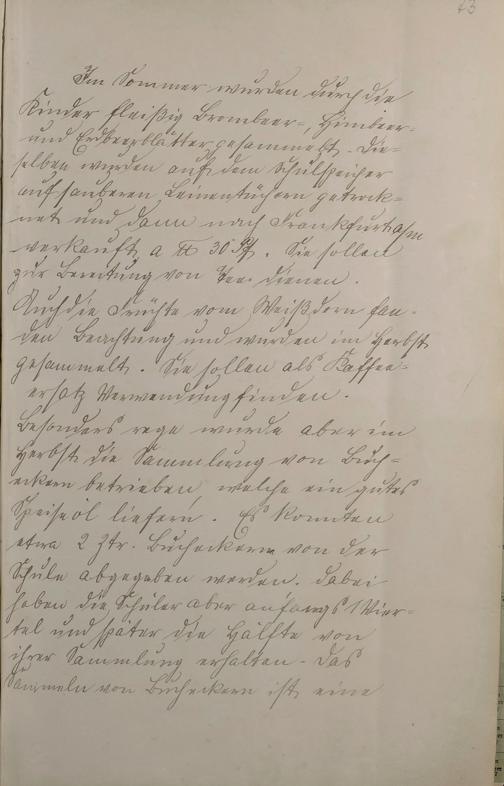 43
Im Sommer wurden durch die
Kinder fleißig Brombeer-, Himbeer-
und Erdbeerblätter gesammelt. Die-
selben wurden auf dem Schulspeicher
auf sauberen Leinentüchern getrock-
net und dann nach Frankfurt a/m
verkauft, a ℔ 30 Pf. Sie sollen
zur Bereitung von Tee dienen.
Auch die Früchte vom Weißdorn fan-
den Beachtung und wurden im Herbst
gesammelt. Sie sollen als Kaffee-
ersatz Verwendung finden.
Besonders rege wurde aber im
Herbst die Sammlung von Buch-
eckern betrieben, welche ein gutes
Speiseöl liefern. Es konnten
etwa 2 Ztr. Bucheckern von der
Schule abgegeben werden. Dabei
haben die Schüler aber anfangs 1 Vier-
tel und später die Hälfte von
ihrer Sammlung erhalten. Das
Sammeln von Bucheckern ist eine